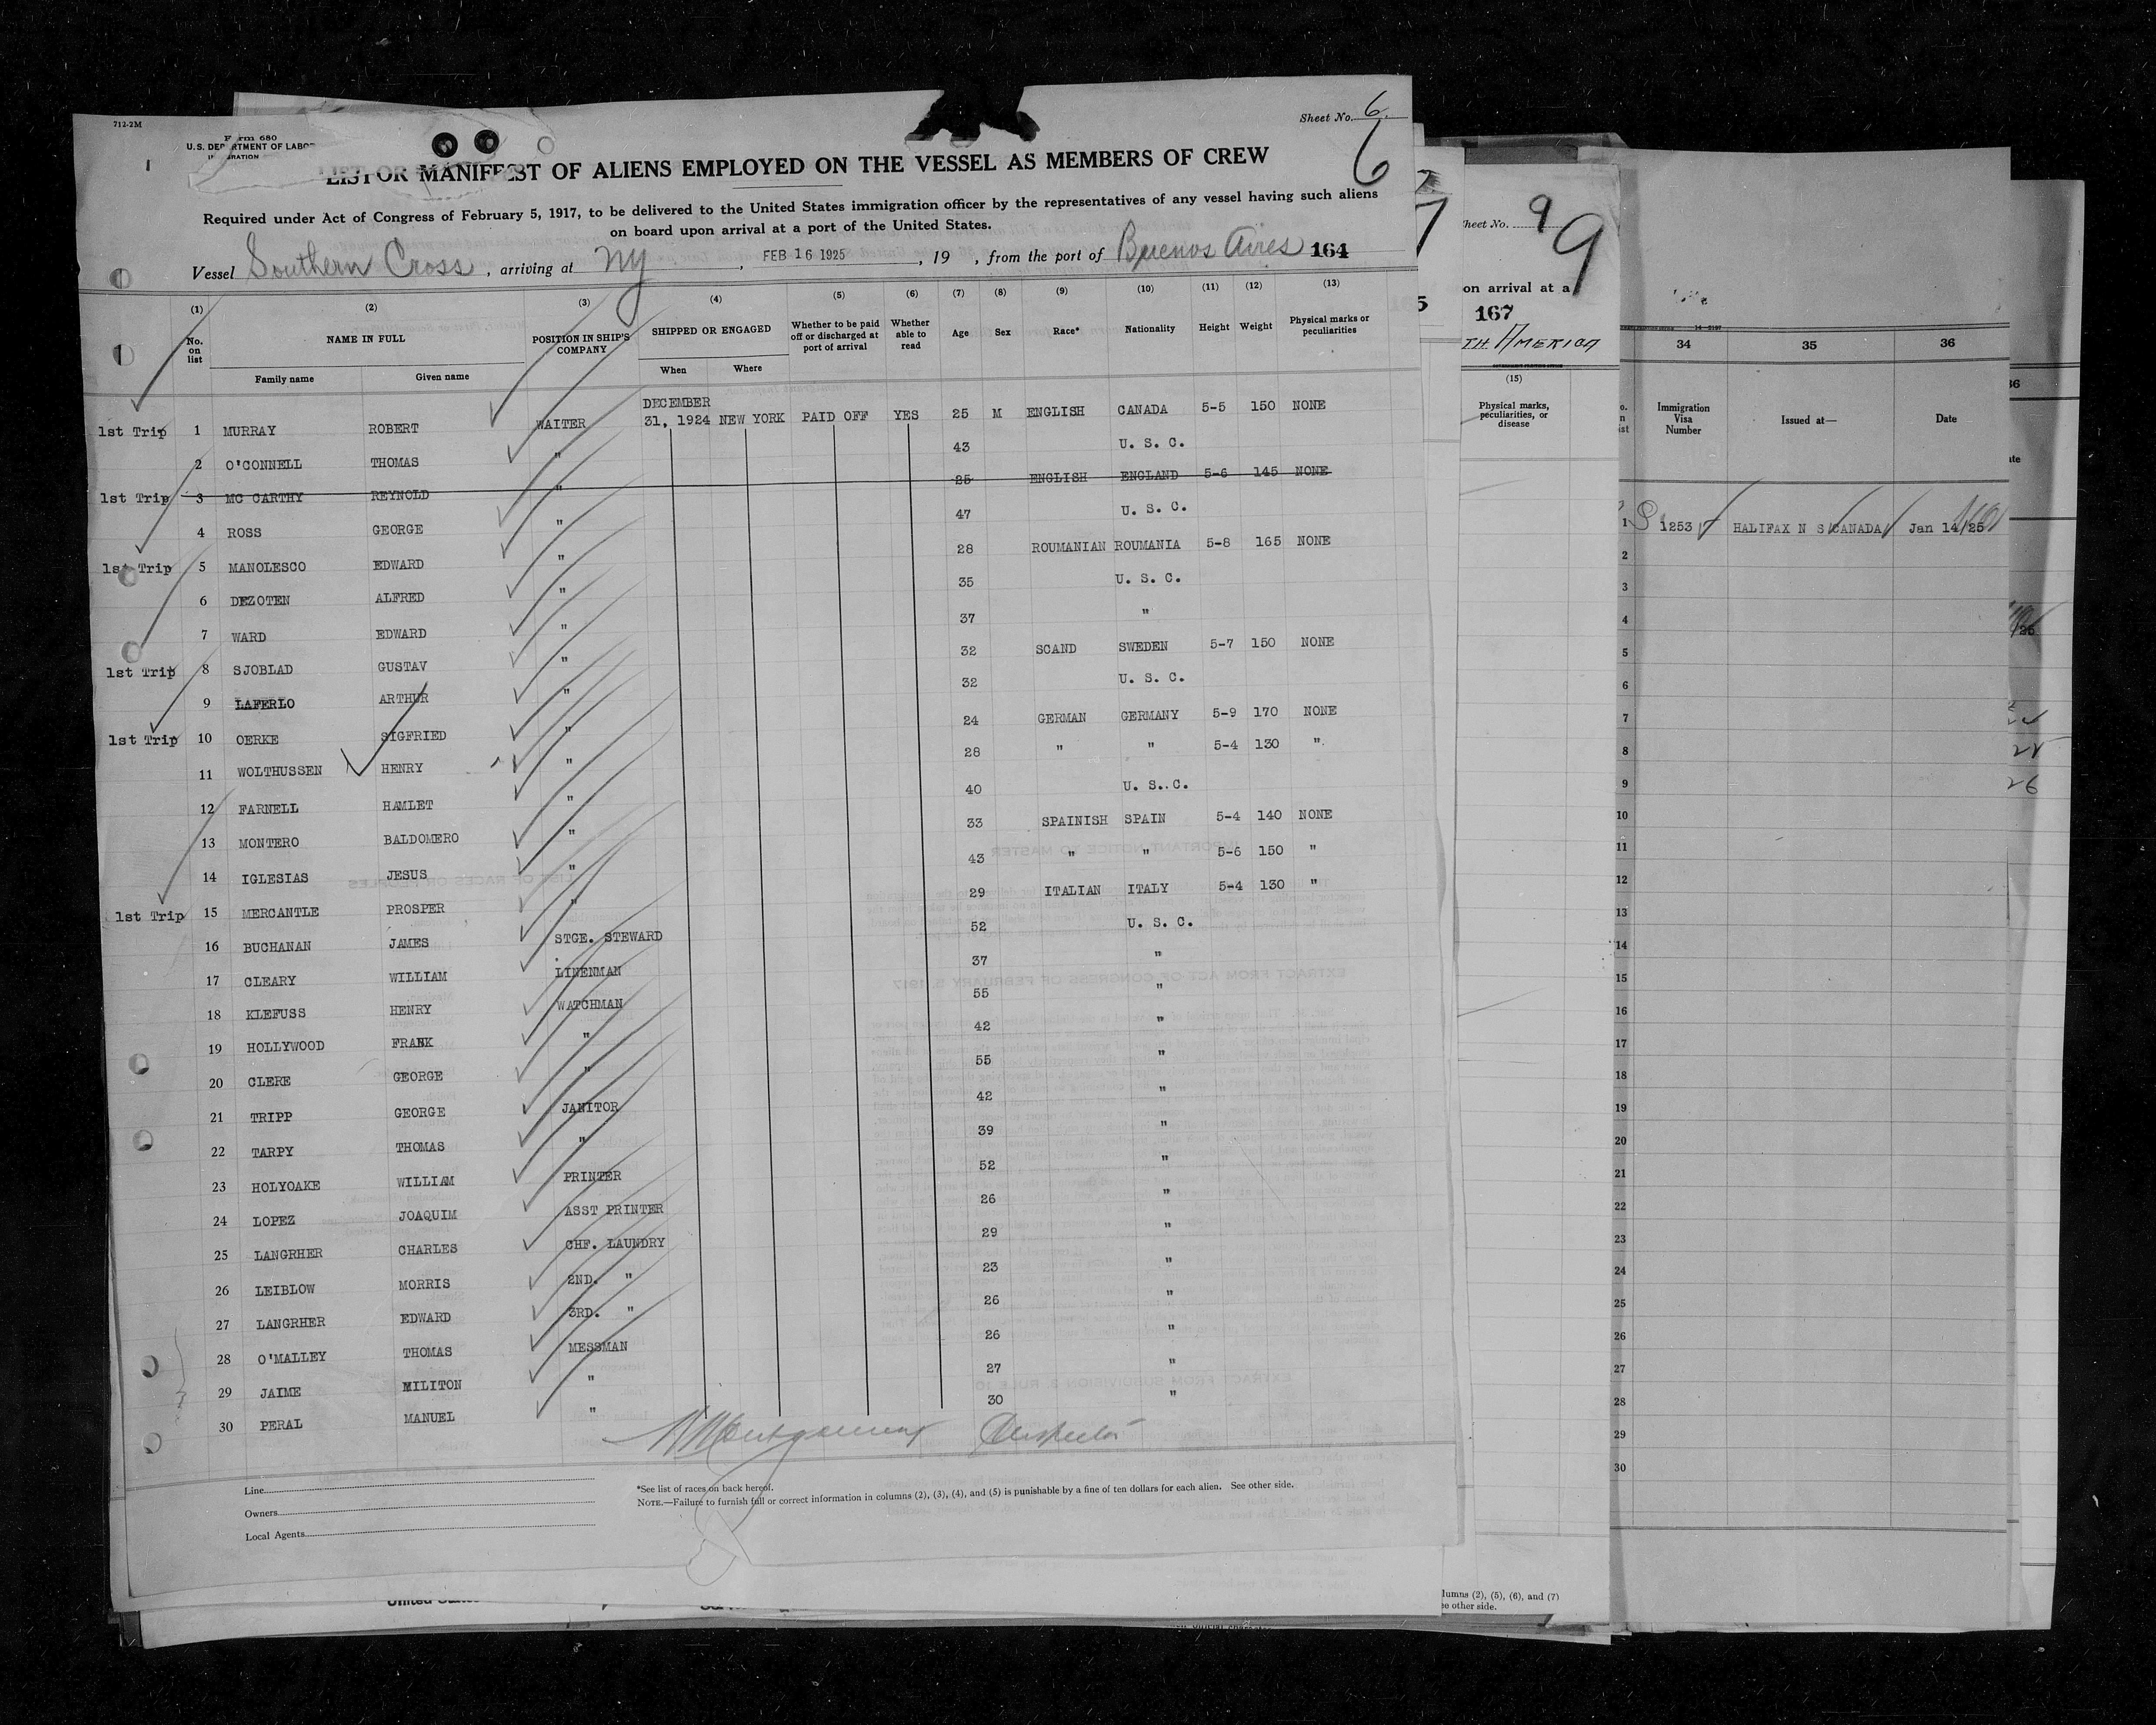 712-2M
Form 680
U.S. DEPARTMENT OF LABOR
Sheet No. 6.
6
LIST OR MANIFEST OF ALIENS EMPLOYED ON THE VESSEL AS MEMBERS OF CREW
Required under Act of Congress of February 5, 1917, to be delivered to the United States immigration officer by the representatives of any vessel having such aliens
on board upon arrival at a port of the United States.
Vessel Southern Cross, arriving at NY, FEB 16 1925, 19 , from the port of Buenos Aires 164
(1) (2) (3) (4) (5) (6) (7) (8) (9) (10) (11) (12) (13)
No. on list NAME IN FULL POSITION IN SHIP'S COMPANY SHIPPED OR ENGAGED Whether to be paid off or discharged at port of arrival Whether able to read Age Sex Race* Nationality Height Weight Physical marks or peculiarities
Family name Given name When Where
1st Trip 1 MURRAY ROBERT WAITER DECEMBER 31, 1924 NEW YORK PAID OFF YES 25 M ENGLISH CANADA 5-5 150 NONE
2 O'CONNELL THOMAS " 43 U. S. C.
1st Trip 3 MC CARTHY REYNOLD " 25 ENGLISH ENGLAND 5-6 145 NONE
4 ROSS GEORGE " 47 U. S. C.
1st Trip 5 MANOLESCO EDWARD " 28 ROUMANIAN ROUMANIA 5-8 165 NONE
6 DEZOTEN ALFRED " 35 U. S. C.
7 WARD EDWARD " 37 "
1st Trip 8 SJOBLAD GUSTAV " 32 SCAND SWEDEN 5-7 150 NONE
9 LAFERLO ARTHUR " 32 U. S. C.
1st Trip 10 OERKE SIGFRIED " 24 GERMAN GERMANY 5-9 170 NONE
11 WOLTHUSSEN HENRY " 28 " " 5-4 130 "
12 FARNELL HAMLET " 40 U. S. C.
13 MONTERO BALDOMERO " 33 SPAINISH SPAIN 5-4 140 NONE
14 IGLESIAS JESUS " 43 " " 5-6 150 "
1st Trip 15 MERCANTLE PROSPER " 29 ITALIAN ITALY 5-4 130 "
16 BUCHANAN JAMES STGE. STEWARD 52 U. S. C.
17 CLEARY WILLIAM LINENMAN 37 "
18 KLEFUSS HENRY WATCHMAN 55 "
19 HOLLYWOOD FRANK " 42 "
20 CLERE GEORGE " 55 "
21 TRIPP GEORGE JANITOR 42 "
22 TARPY THOMAS " 39 "
23 HOLYOAKE WILLIAM PRINTER 52 "
24 LOPEZ JOAQUIM ASST PRINTER 26 "
25 LANGRHER CHARLES CHF. LAUNDRY 29 "
26 LEIBLOW MORRIS 2ND. " 23 "
27 LANGRHER EDWARD 3RD. " 26 "
28 O'MALLEY THOMAS MESSMAN 26 "
29 JAIME MILITON " 27 "
30 PERAL MANUEL " 30 "
Montgomery Inspector
Line
Owners
Local Agents
*See list of races on back hereof.
NOTE.—Failure to furnish full or correct information in columns (2), (3), (4), and (5) is punishable by a fine of ten dollars for each alien. See other side.
7
5
Sheet No. 9
9
on arrival at a
167
TH AMERICA
(15)
Physical marks, peculiarities, or disease
lumns (2), (5), (6), and (7)
ee other side.
34 35 36
Immigration Visa Number Issued at— Date
1 1253 HALIFAX N S CANADA Jan 14/25
2
3
4
5
6
7
8
9
10
11
12
13
14
15
16
17
18
19
20
21
22
23
24
25
26
27
28
29
30
36
26